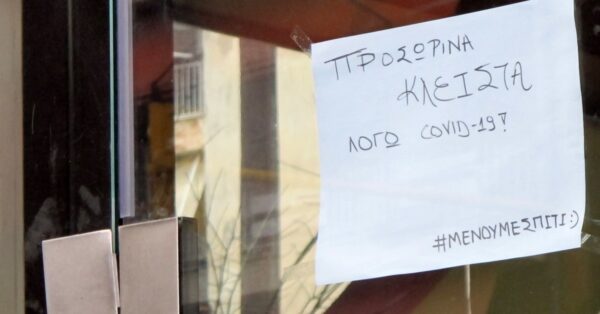 ΠΡΟΣΩΡΙΝΑ
ΚΛΕΙΣΤΑ
ΛΟΓΩ COVID-19!
#ΜΕΝΟΥΜΕΣΠΙΤΙ:)